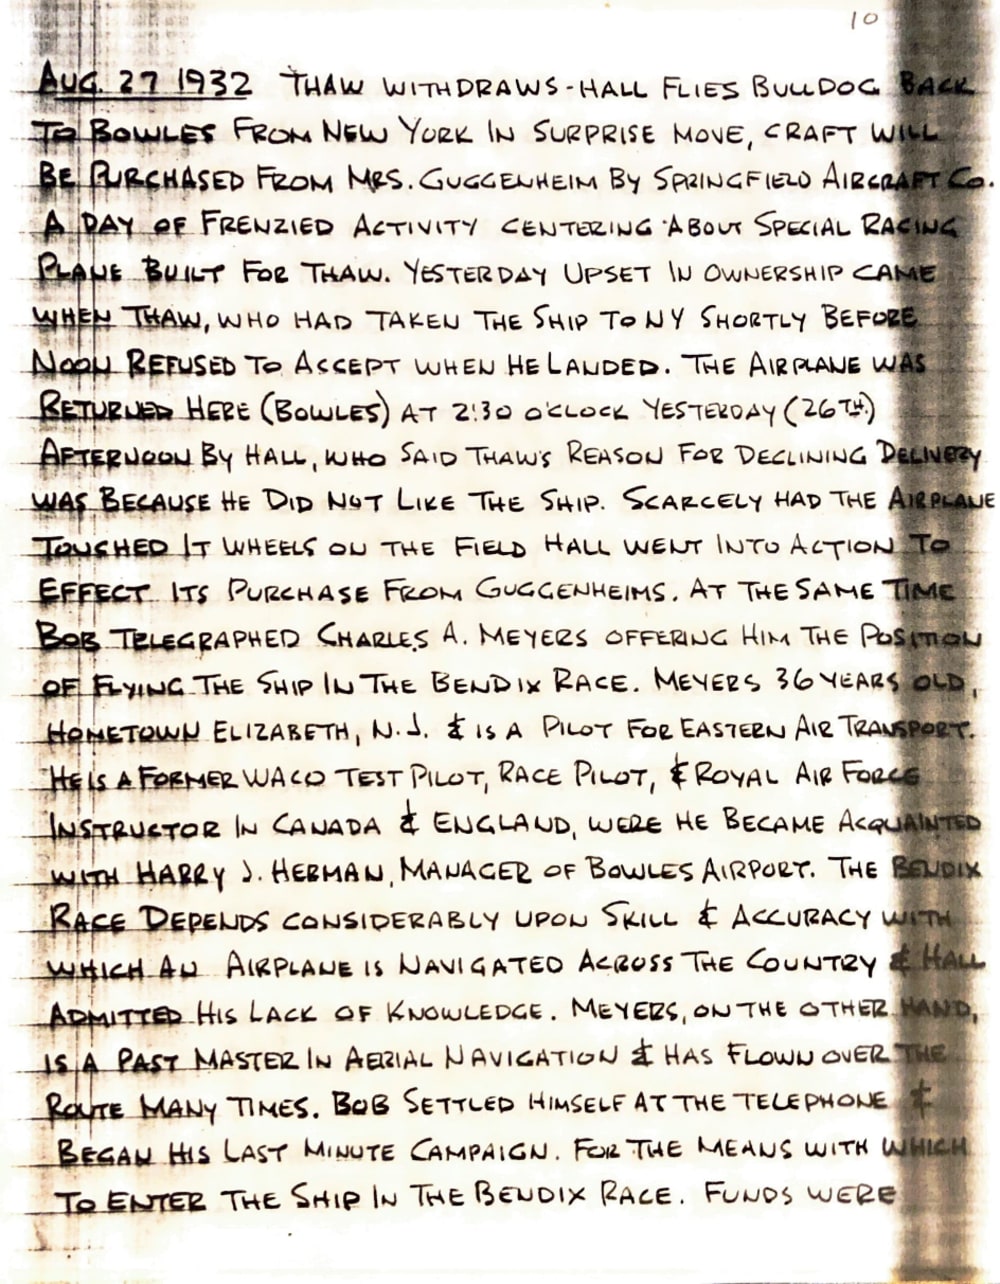 10
AUG. 27 1932 THAW WITHDRAWS - HALL FLIES BULLDOG BACK
TO BOWLES FROM NEW YORK IN SURPRISE MOVE, CRAFT WILL
BE PURCHASED FROM MRS. GUGGENHEIM BY SPRINGFIELD AIRCRAFT CO.
A DAY OF FRENZIED ACTIVITY CENTERING ABOUT SPECIAL RACING
PLANE BUILT FOR THAW. YESTERDAY UPSET IN OWNERSHIP CAME
WHEN THAW, WHO HAD TAKEN THE SHIP TO NY SHORTLY BEFORE
NOON REFUSED TO ACCEPT WHEN HE LANDED. THE AIRPLANE WAS
RETURNED HERE (BOWLES) AT 2:30 O'CLOCK YESTERDAY (26TH.)
AFTERNOON BY HALL, WHO SAID THAW'S REASON FOR DECLINING DELIVERY
WAS BECAUSE HE DID NOT LIKE THE SHIP. SCARCELY HAD THE AIRPLANE
TOUCHED IT WHEELS ON THE FIELD HALL WENT INTO ACTION TO
EFFECT ITS PURCHASE FROM GUGGENHEIMS. AT THE SAME TIME
BOB TELEGRAPHED CHARLES A. MEYERS OFFERING HIM THE POSITION
OF FLYING THE SHIP IN THE BENDIX RACE. MEYERS 36 YEARS OLD,
HOMETOWN ELIZABETH, N.J. & IS A PILOT FOR EASTERN AIR TRANSPORT.
HE IS A FORMER WACO TEST PILOT, RACE PILOT, & ROYAL AIR FORCE
INSTRUCTOR IN CANADA & ENGLAND, WERE HE BECAME ACQUAINTED
WITH HARRY J. HERMAN, MANAGER OF BOWLES AIRPORT. THE BENDIX
RACE DEPENDS CONSIDERABLY UPON SKILL & ACCURACY WITH
WHICH AN AIRPLANE IS NAVIGATED ACROSS THE COUNTRY & HALL
ADMITTED HIS LACK OF KNOWLEDGE. MEYERS, ON THE OTHER HAND,
IS A PAST MASTER IN AERIAL NAVIGATION & HAS FLOWN OVER THE
ROUTE MANY TIMES. BOB SETTLED HIMSELF AT THE TELEPHONE &
BEGAN HIS LAST MINUTE CAMPAIGN. FOR THE MEANS WITH WHICH
TO ENTER THE SHIP IN THE BENDIX RACE. FUNDS WERE